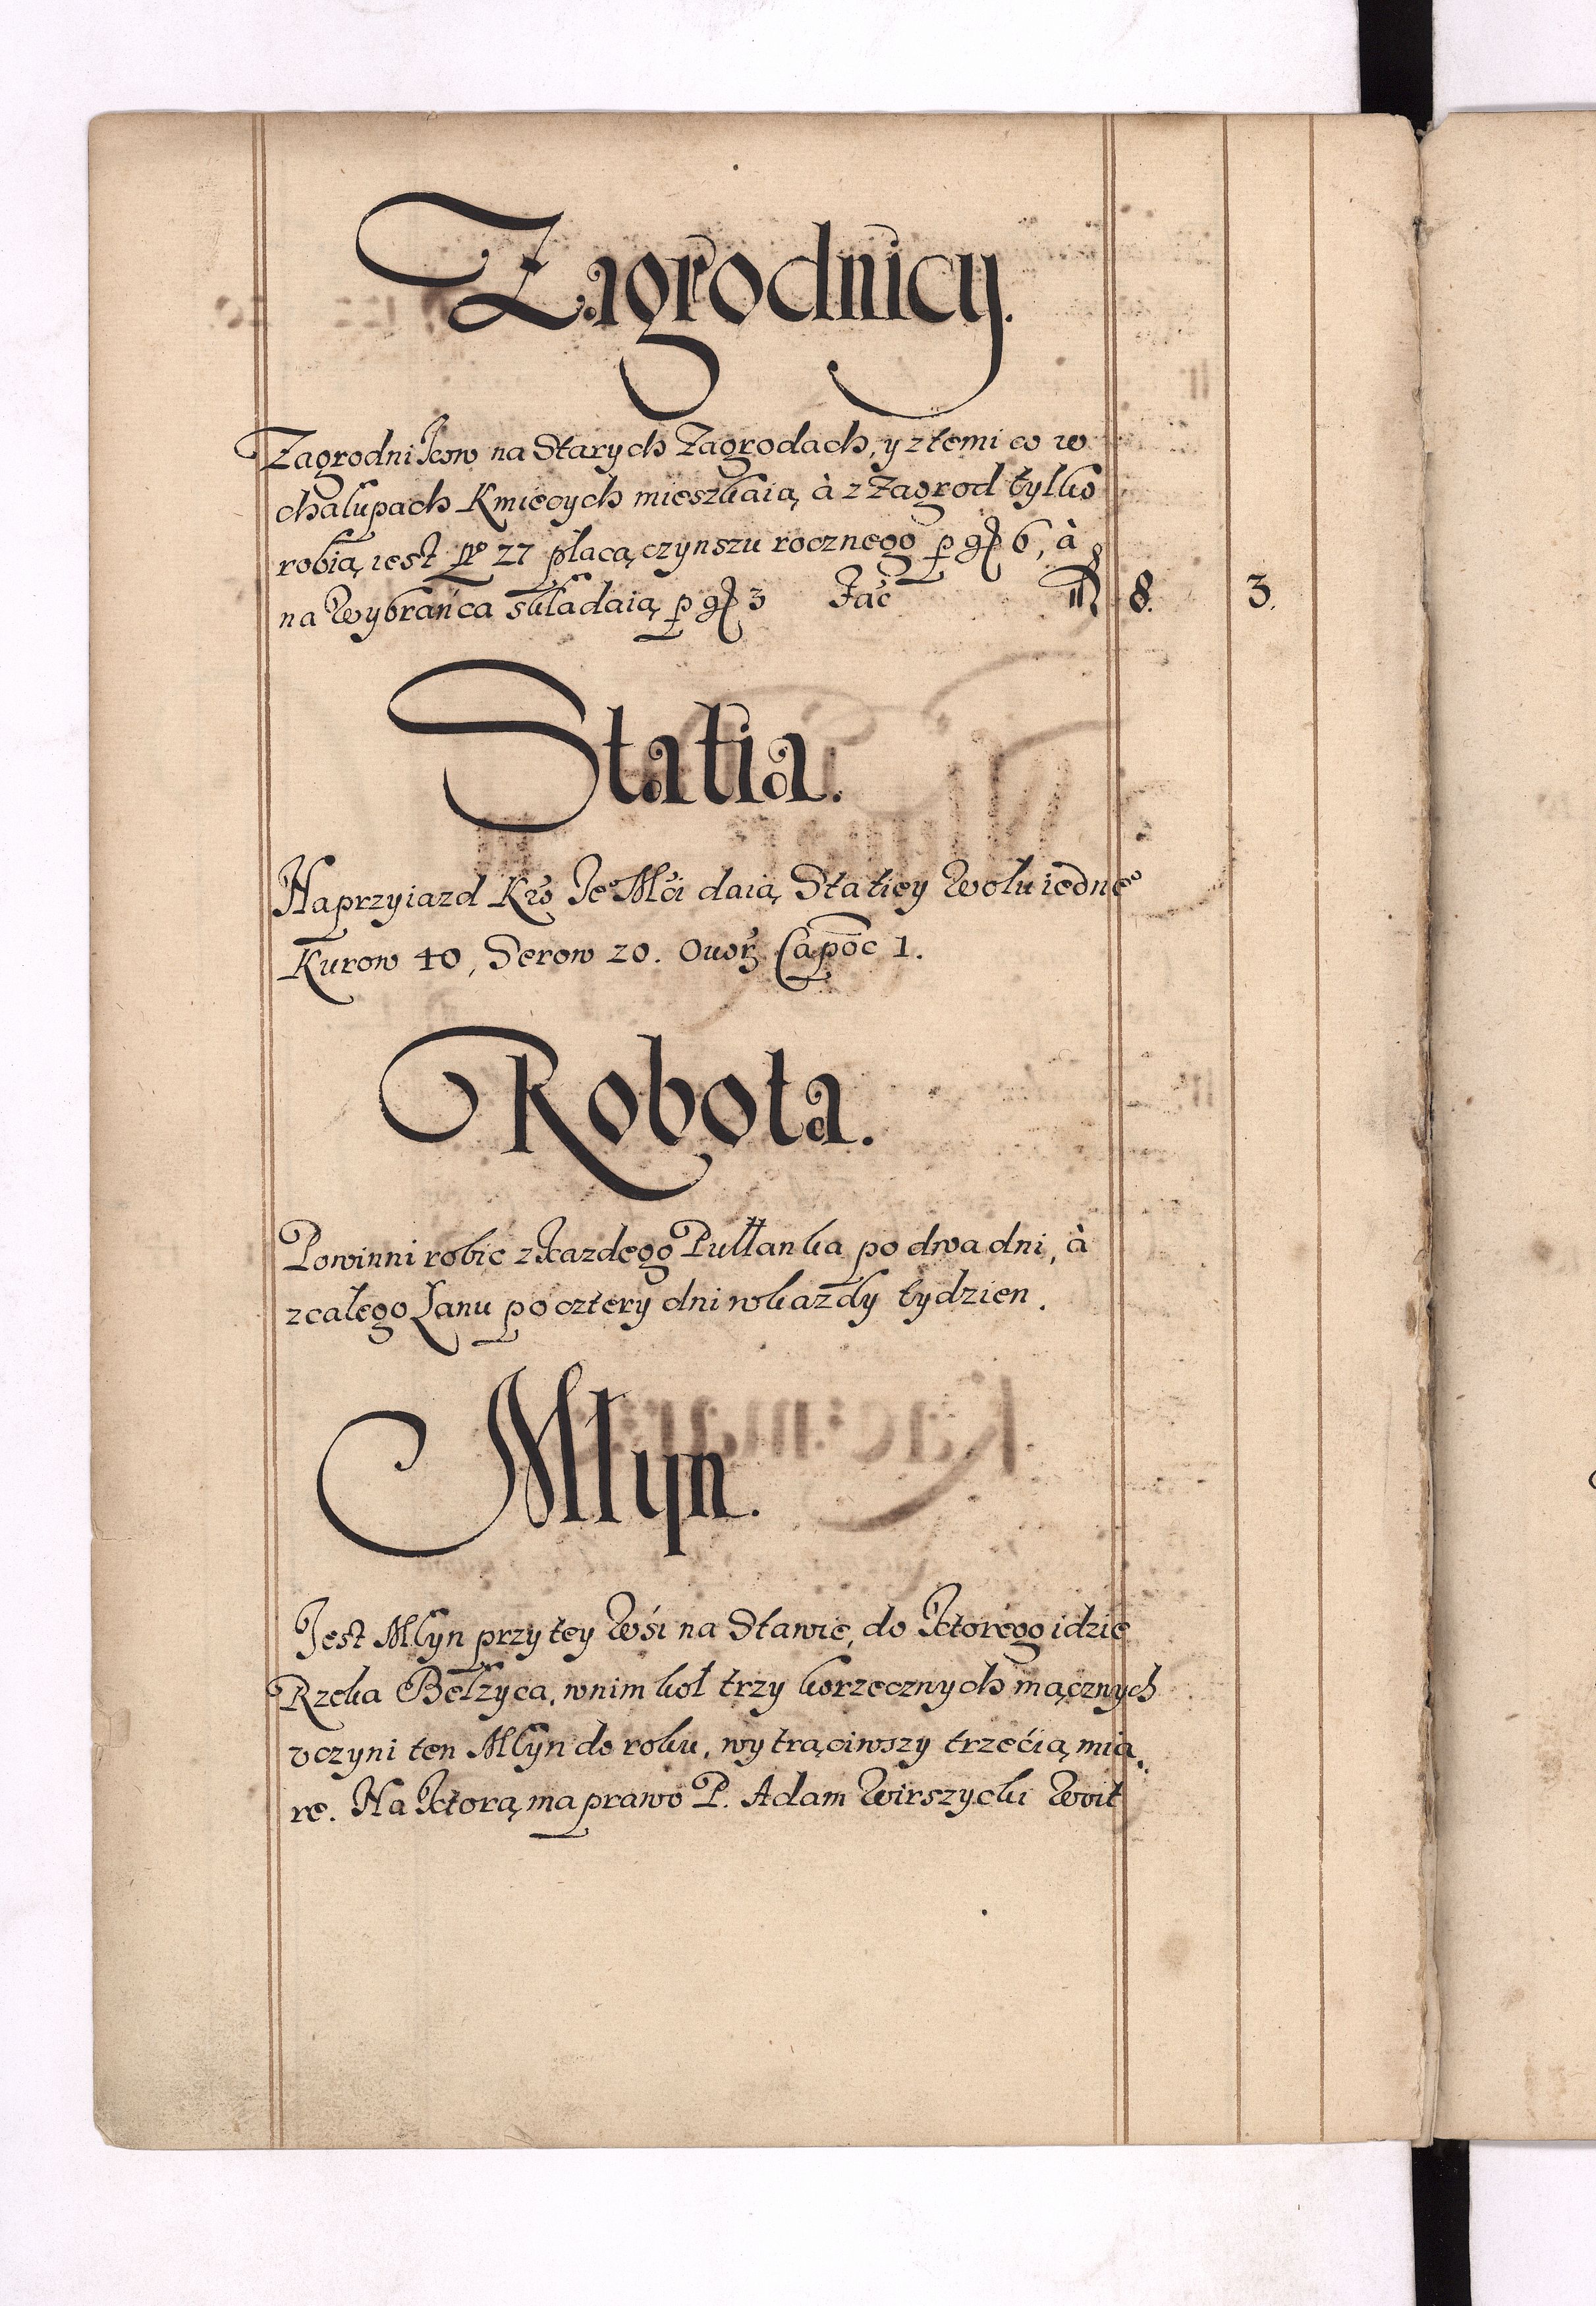 Zagrodnicy.
Zagrodnikow na Starych Zagrodach, y z temi co w
chalupach Kmiecych mieszkaią, à z Zagrod tylko
robią, iest Nro 27 płacą czynszu rocznego p gr 6, à
na Wybrańca składaią p gr 3 Fać fl 8. 3.
Statia.
Na przyiazd Kro Je° Mći daią Statiey Wołu iedne°
Kurow 40, Serow 20. Owoź Capoc 1.
Robota.
Powinni robic z kazdego Pułłanka po dwa dni, à
z całego Łanu po cztery dni w kazdy tydzien.
Młyn.
Jest Młyn przy tey Wśi na Stawie, do ktorego idzie
Rzeka Bełżyca, w nim koł trzy korzecznych mącznych
vczyni ten Młyn do roku, wytrąciwszy trzećią mia
re. Na ktorą ma prawo P. Adam Wirszycki Woit